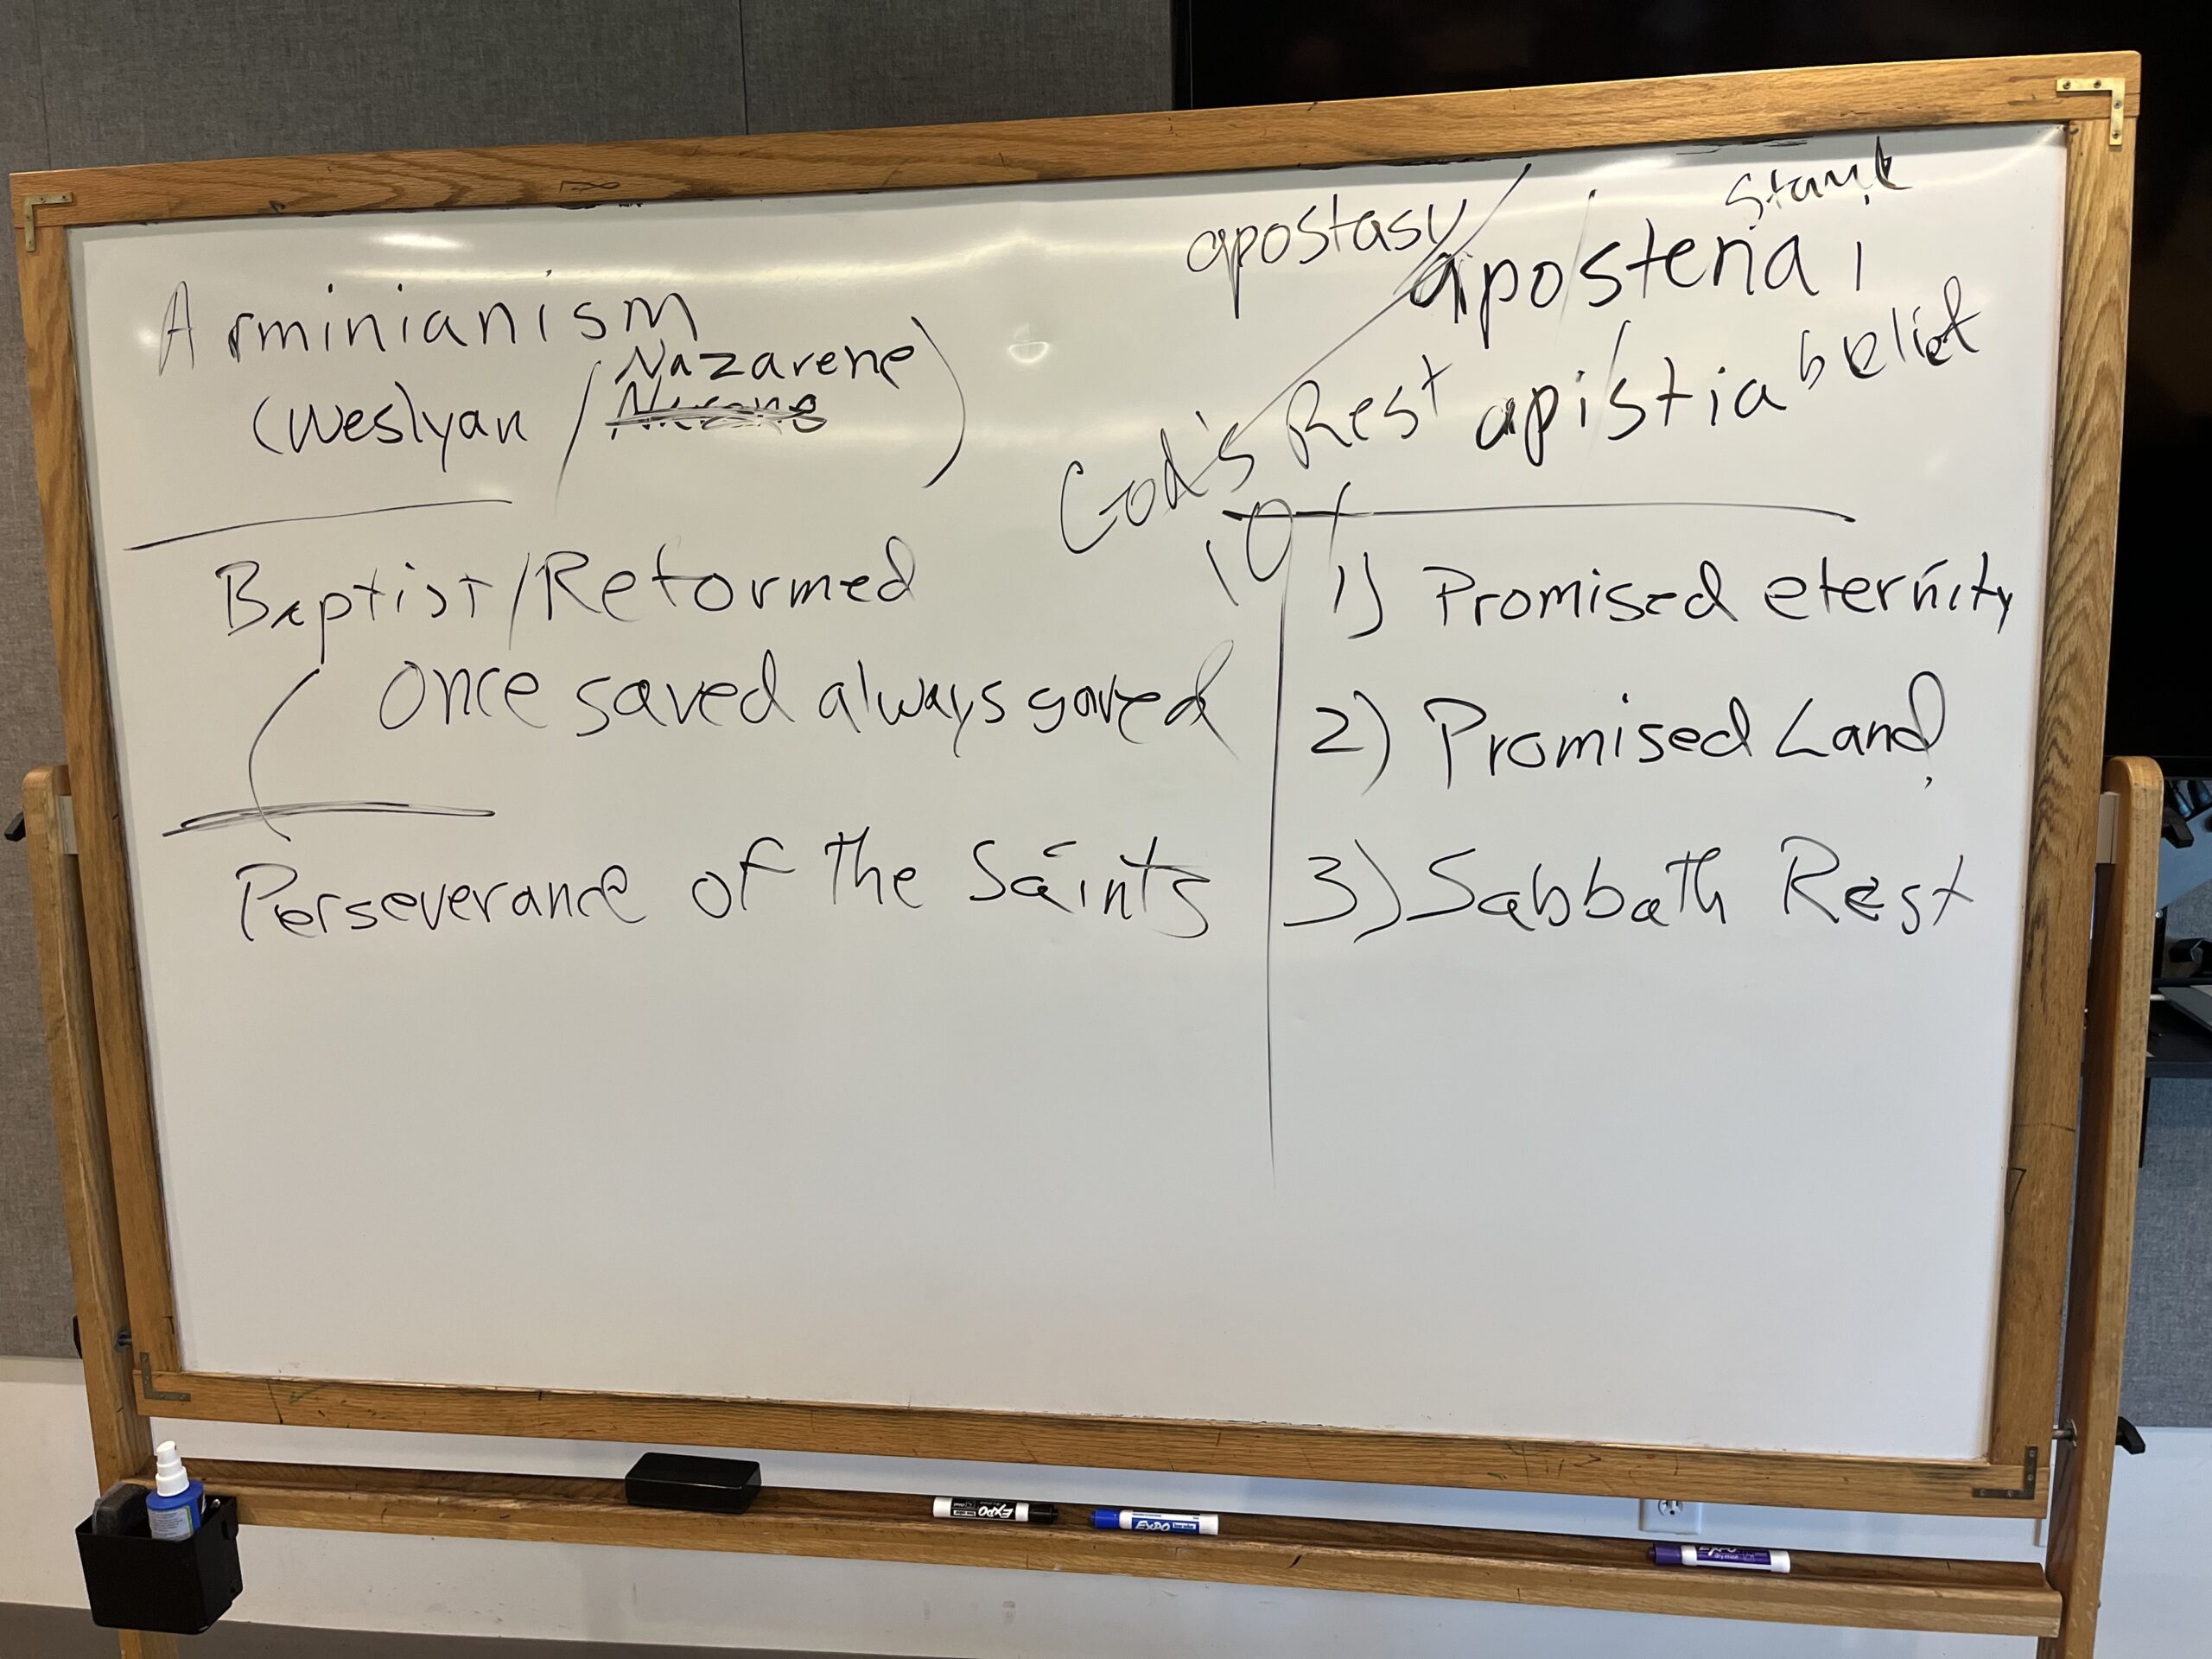 Arminianism
(Weslyan / Nazarene)
Baptist/Reformed
Once saved always saved
Perseverance of the Saints
apostasy
stand
apo/stenai
God's Rest
ap/istia belief
10x
1) Promised eternity
2) Promised Land
3) Sabbath Rest
EXPO
EXPO
EXPO